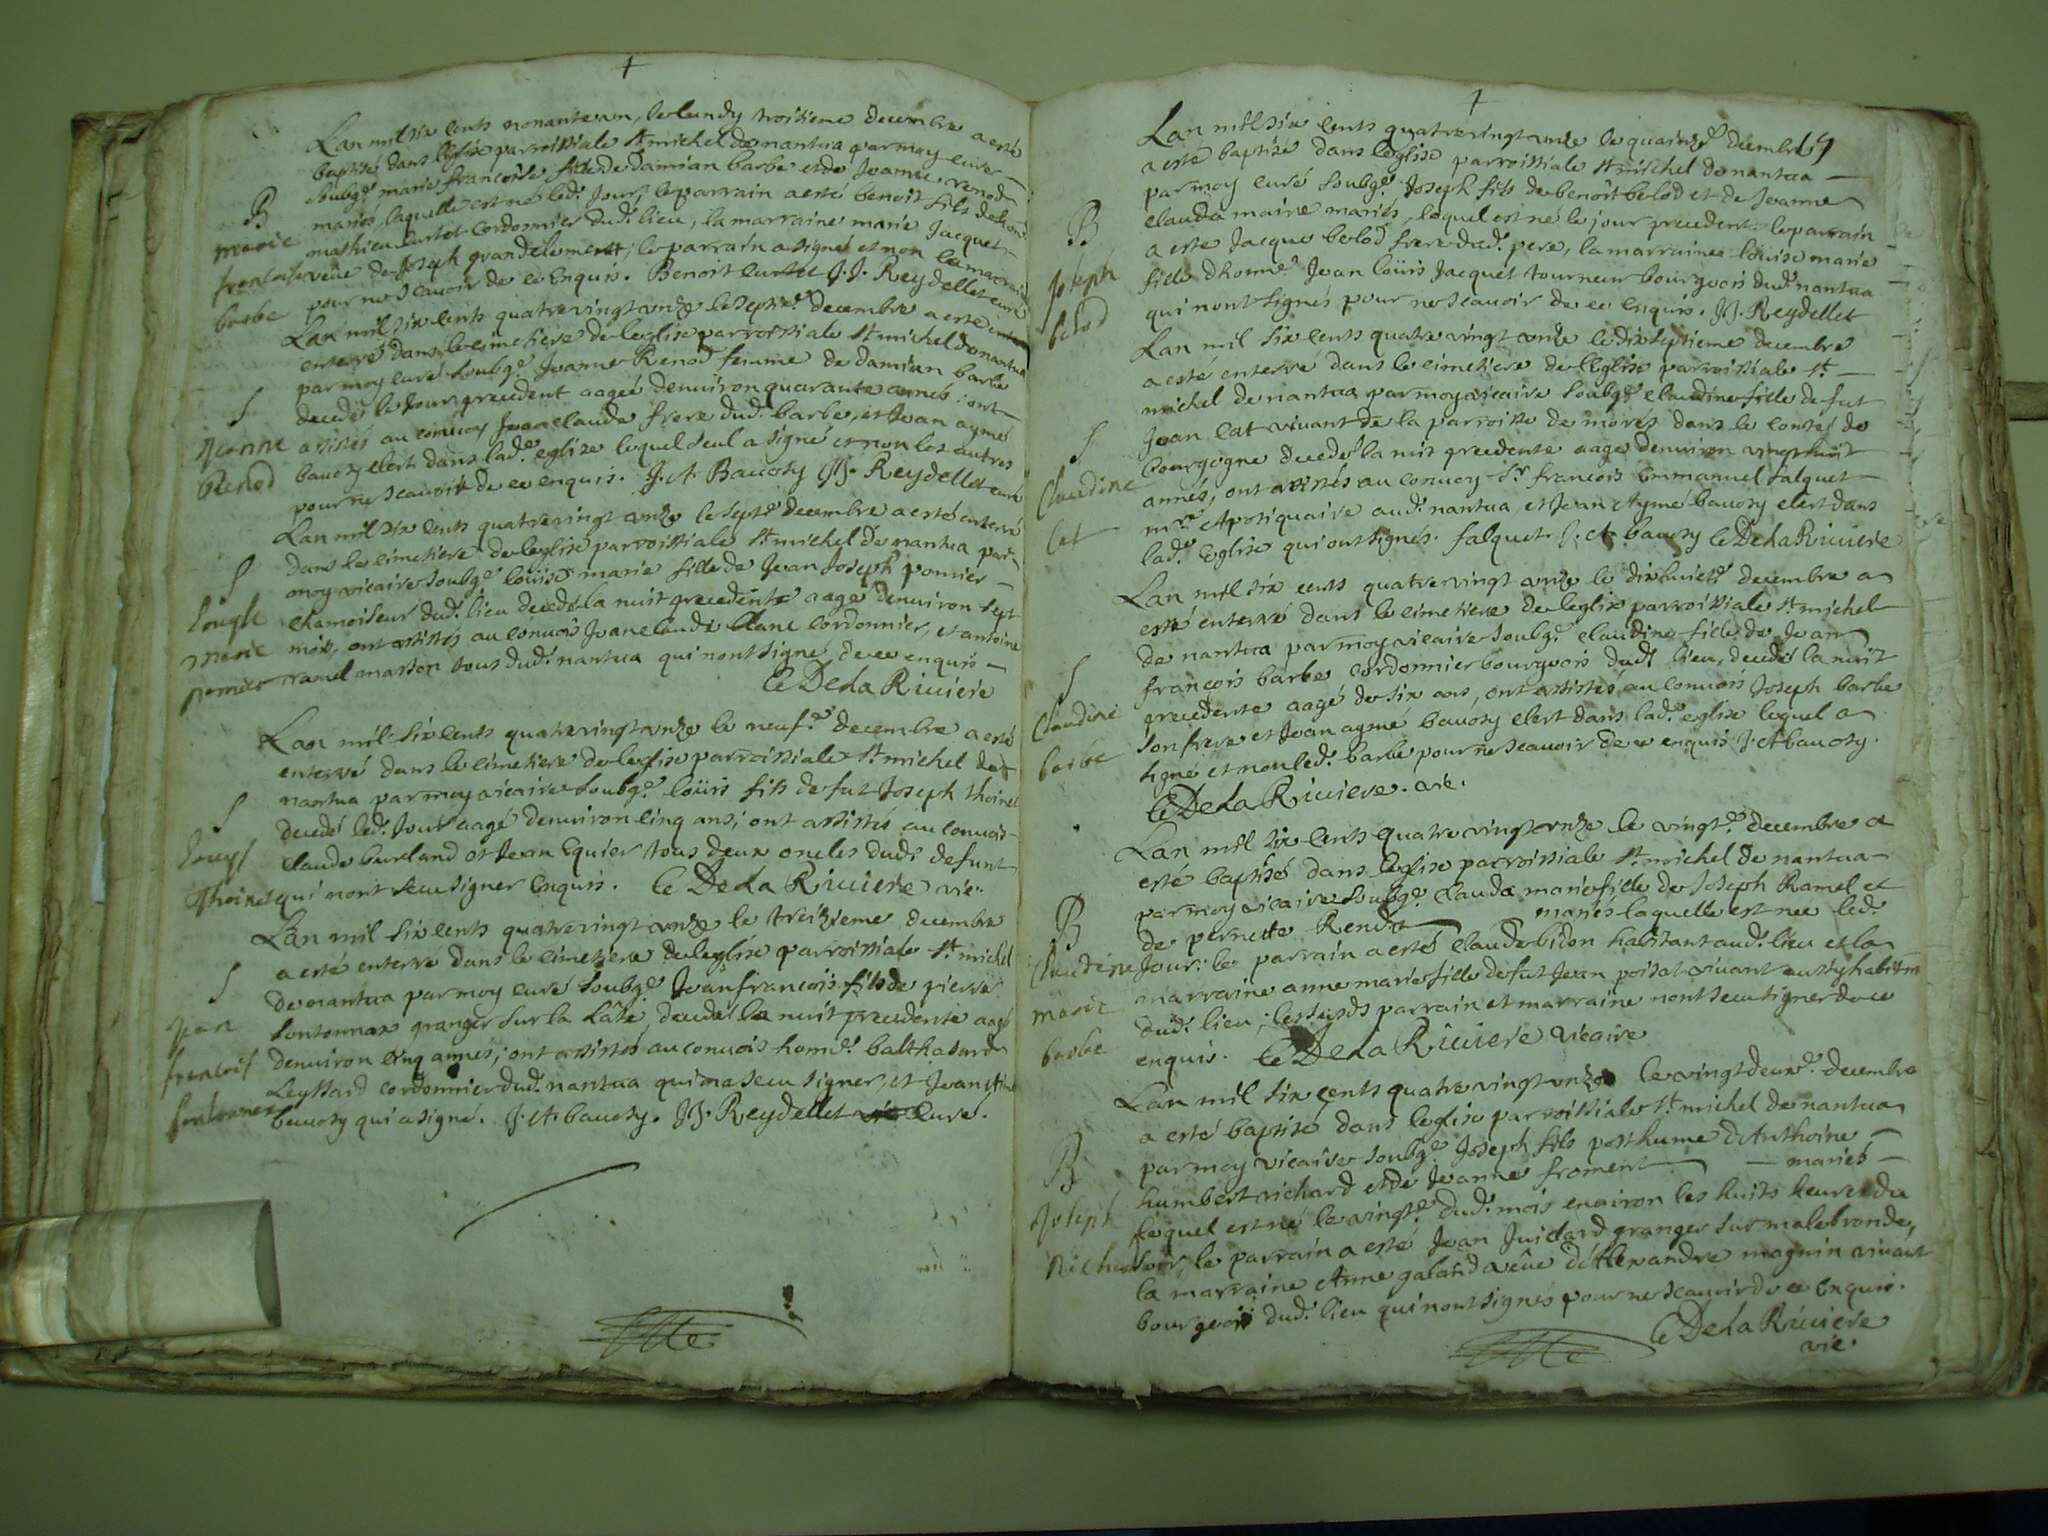 Lan mil six cents nonante un, le lundy troisieme decembre a esté
baptisé dans leglise parroissiale st michel de nantua par moy curé
soubge. marie francoise fille de damian barbe et de Jeanne renod
B
mariés, laquelle est né led. Jour, le parrain a esté benoit fils de hon.
marie
mathieu curtet cordonnier dud. lieu, la marraine marie Jacquet
francoise
veüe de Joseph grandclement, le parrain a signé et non la marraine
barbe
pour ne scauoir de ce enquis. Benoit curtet J.J. Reydellet curé
Lan mil six cents quatre vingt onze le septe. decembre a esté
enterré dans le cimetiere de leglise parroissiale st michel de nantua
par moy curé soubge. Jeanne Renod femme de damian barbe
decedé le Jour precedent aageé denuiron quarante annés: ont
S
Jeanne
assistés au conuoy Jean claude frere dud. barbe, et Jean aymé
Renod
bauosy clert dans lad. eglise lequel seul a signé et non les autres
pour ne scauoir de ce enquis. J. A. Bauosy J.J. Reydellet curé
Lan mil six cents quatre vingt onze le septe. decembre a esté enterré
dans le cimetiere de leglise parroissiale st michel de nantua par
S
moy vicaire soubge. louise marie fille de Jean Joseph pomier
Louyse
chamoiseur dud. lieu decedé la nuit precedente aagé denuiron sept
marie
mois, ont assistés au conuois Jean claude blanc cordonnier, et antoine
pomier
ramel masson tous dud. nantua qui nont signé de ce enquis
C De La Riuiere
Lan mil six cents quatre vingt onze le neufe. decembre a esté
enterré dans le cimetiere de leglise parroissiale st michel de
nantua par moy vicaire soubge. loüis fils de fut Joseph thoinet
S
decedé led. Jour aagé denuiron cinq ans; ont assistés au conuois
Louys
claude burland et Jean Equier tous deux oncles dud. defunt
Thoinet
qui nont sceu signer enquis. C De La Riuiere vic.
Lan mil six cents quatre vingt onze le treizieme decembre
a esté enterré dans le cimetiere de leglise parroissiale st michel
S
de nantua par moy curé soubge. Jean francois fils de pierre
Jean
sontonnax granger sur la Lâte, decedé la nuit precedente aagé
francois
denuiron cinq annés; ont assistés au conuois hon. balthasard
sontonnax
Leyssard cordonnier dud. nantua qui n'a sceu signer, et Jean Aimé
bauosy qui a signé. J. A. bauosy. J.J. Reydellet curé.
Lan mil six cents quatre vingt onze le quinze. decembre
a esté baptisé dans leglise parroissiale st michel de nantua
par moy curé soubge. Joseph fils de benoit belod et de Jeanne
B
clauda maire mariés, lequel est né le jour precedent. le parrain
a esté Jacque belod frere dud. pere, la marraine louise marie
Joseph
fille dhonne. Jean loüis Jacquet tourneur bourgeois dud. nantua
belod
qui nont signés pour ne scauoir de ce enquis. J.J. Reydellet
Lan mil six cents quatre vingt onze le dixseptieme decembre
a esté enterré dans le cimetiere de leglise parroissiale st
michel de nantua par moy vicaire soubge. claudine fille de fut
S
Jean Cat viuant de la parroisse de morés dans le conté de
bourgogne decedé la nuit precedente aagé denuiron vingt huit
Claudine
annés, ont assistés au conuoy sr. francois Emmanuel falquet
Cat
mre. Apotiquaire aud. nantua, et Jean Aymé bauosy clert dans
lad. eglise qui ont signés. falquet. J. A. bauosy C De La Riuiere
Lan mil six cents quatre vingt onze le dix huicte. decembre a
esté enterré dans le cimetiere de leglise parroissiale st michel
de nantua par moy vicaire soubge. claudine fille de Jean
S
françois barbe cordonnier bourgeois dud. lieu, decedé la nuit
Claudine
precedente aagé de six ans, ont assistés au conuois Joseph barbe
barbe
son frere et Jean aymé bauosy clert dans lad. eglise lequel a
signé et non led. barbe pour ne scauoir de ce enquis J. A bauosy.
C De La Riuiere. vic.
Lan mil six cents quatre vingt onze le vingte. decembre a
esté baptisé dans leglise parroissiale st michel de nantua
par moy vicaire soubge. clauda marie fille de Joseph Ramel et
B
de pernette Rendu mariés laquelle est neé led.
Claudine
Jour: le parrain a esté claude bidon habitant aud. lieu et la
marie
marraine anne marie fille de fut Jean poisat viuant aussy habitan
barbe
dud. lieu; lessusds parrain et marraine nont sceu signer de ce
enquis. C De La Riuiere vicaire
Lan mil six cents quatre vingt onze le vingt deuxe. decembre
a esté baptisé dans leglise parroissiale st michel de nantua
B
par moy vicaire soubge. Joseph fils posthume d'Anthoine
humbert richard et de Jeanne froment mariés
Joseph
lequel est né le vingte. dud. mois enuiron les huits heures du
Richard
soir, le parrain a esté Jean Juidard granger sur malebronde,
la marraine Anne galand veüe d'Alexandre magnin viuant
bourgeois dud. lieu qui nont signés pour ne scauoir de ce enquis.
C De La Riuiere
vic.